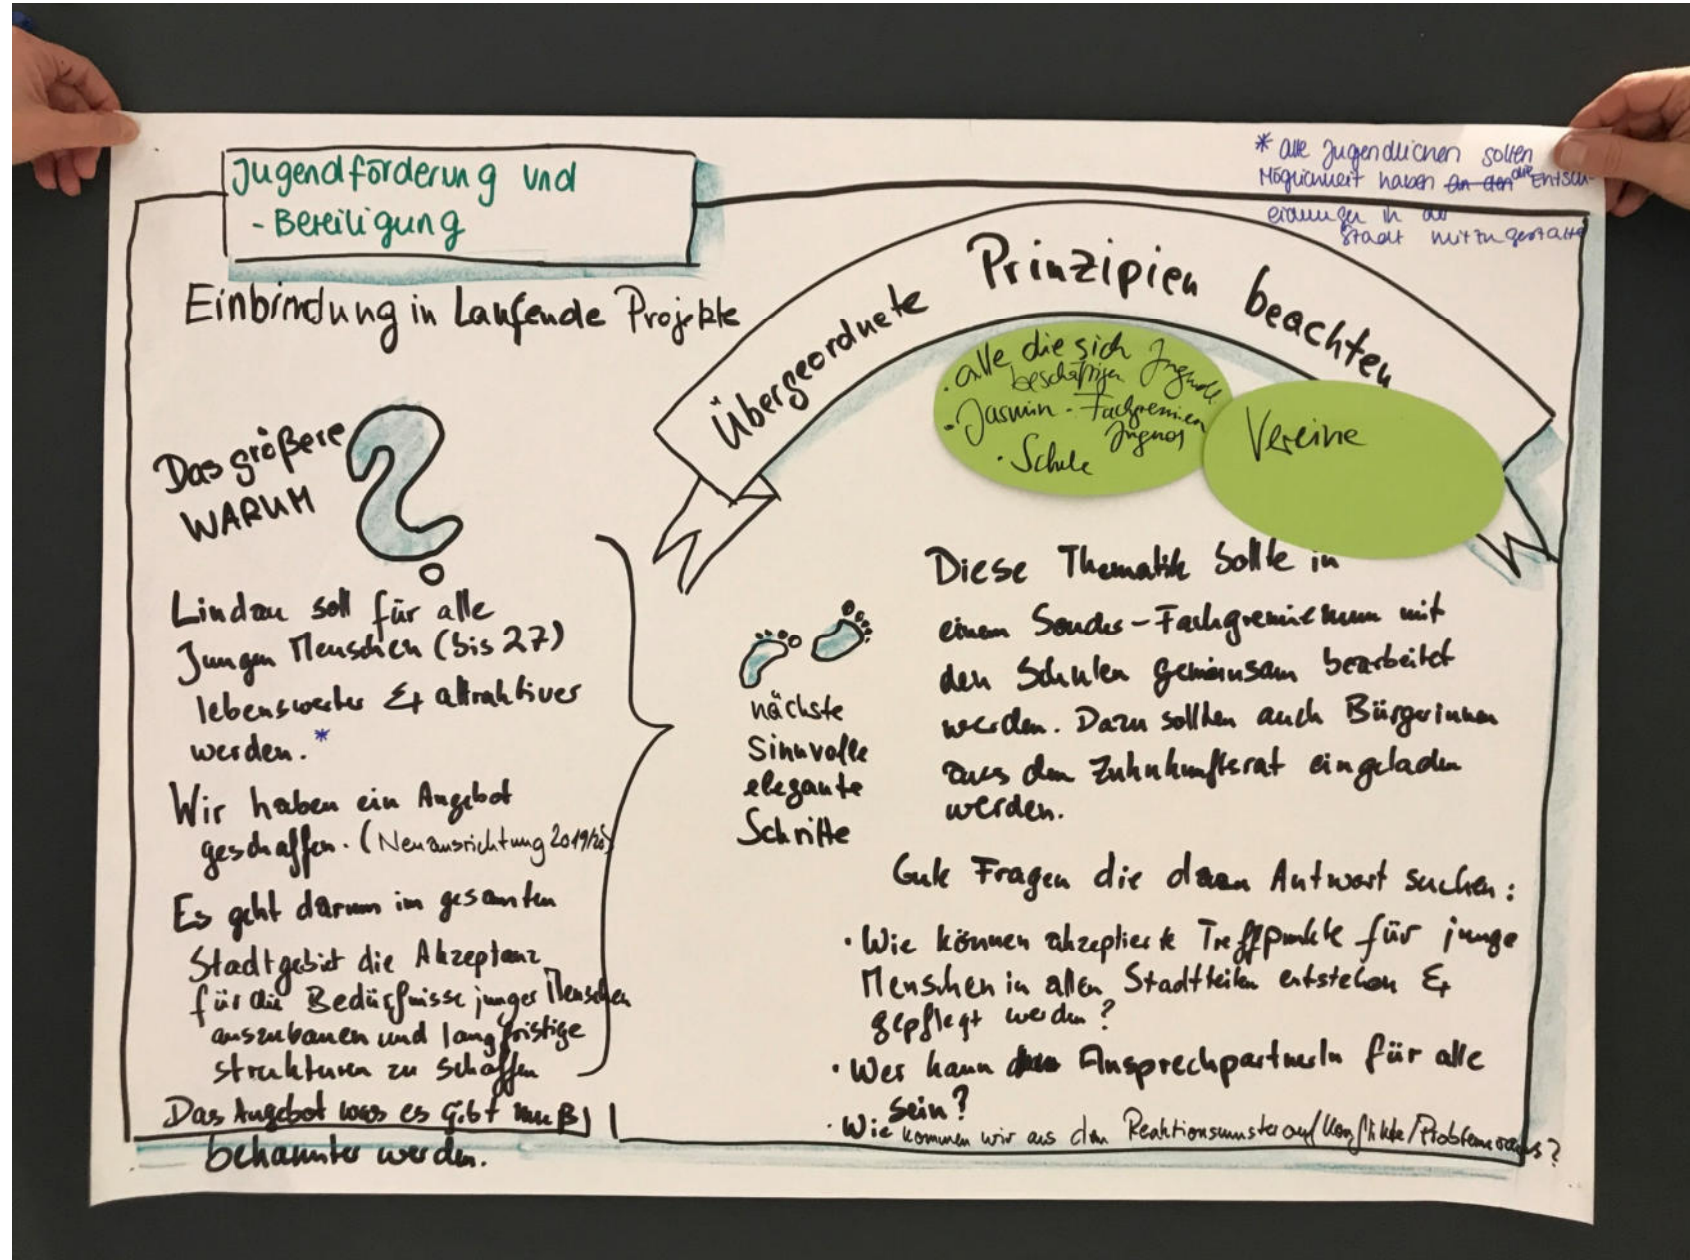 Jugendförderung und
- Beteiligung
* alle Jugendlichen sollen
Möglichkeit haben an den die Entsch-
eidungen in der
Stadt mitzugestalten
Einbindung in Laufende Projekte
Übergeordnete Prinzipien beachten
• alle die sich Jugendl.
beschäftigen
• Jasmin - Fachgremien
Jugend
• Schule
Vereine
Das größere
WARUM
?
Lindau soll für alle
Jungen Menschen (bis 27)
lebenswerter & attraktiver
werden. *
Wir haben ein Angebot
geschaffen. (Neuausrichtung 2019/20)
Es geht darum im gesamten
Stadtgebiet die Akzeptanz
für die Bedürfnisse junger Menschen
auszubauen und langfristige
strukturen zu schaffen
Das Angebot was es gibt muß
bekannter werden.
nächste
Sinnvolle
elegante
Schritte
Diese Thematik sollte in
einem Sonder-Fachgremium mit
den Schulen gemeinsam bearbeitet
werden. Dazu sollten auch Bürgerinnen
aus dem Zukunftsrat eingeladen
werden.
Gute Fragen die Antwort suchen:
• Wie können akzeptierte Treffpunkte für junge
Menschen in allen Stadtteilen entstehen &
gepflegt werden?
• Wer kann AnsprechpartnerIn für alle
sein?
• Wie kommen wir aus dem Reaktionsmuster auf Konflikte/Probleme raus?